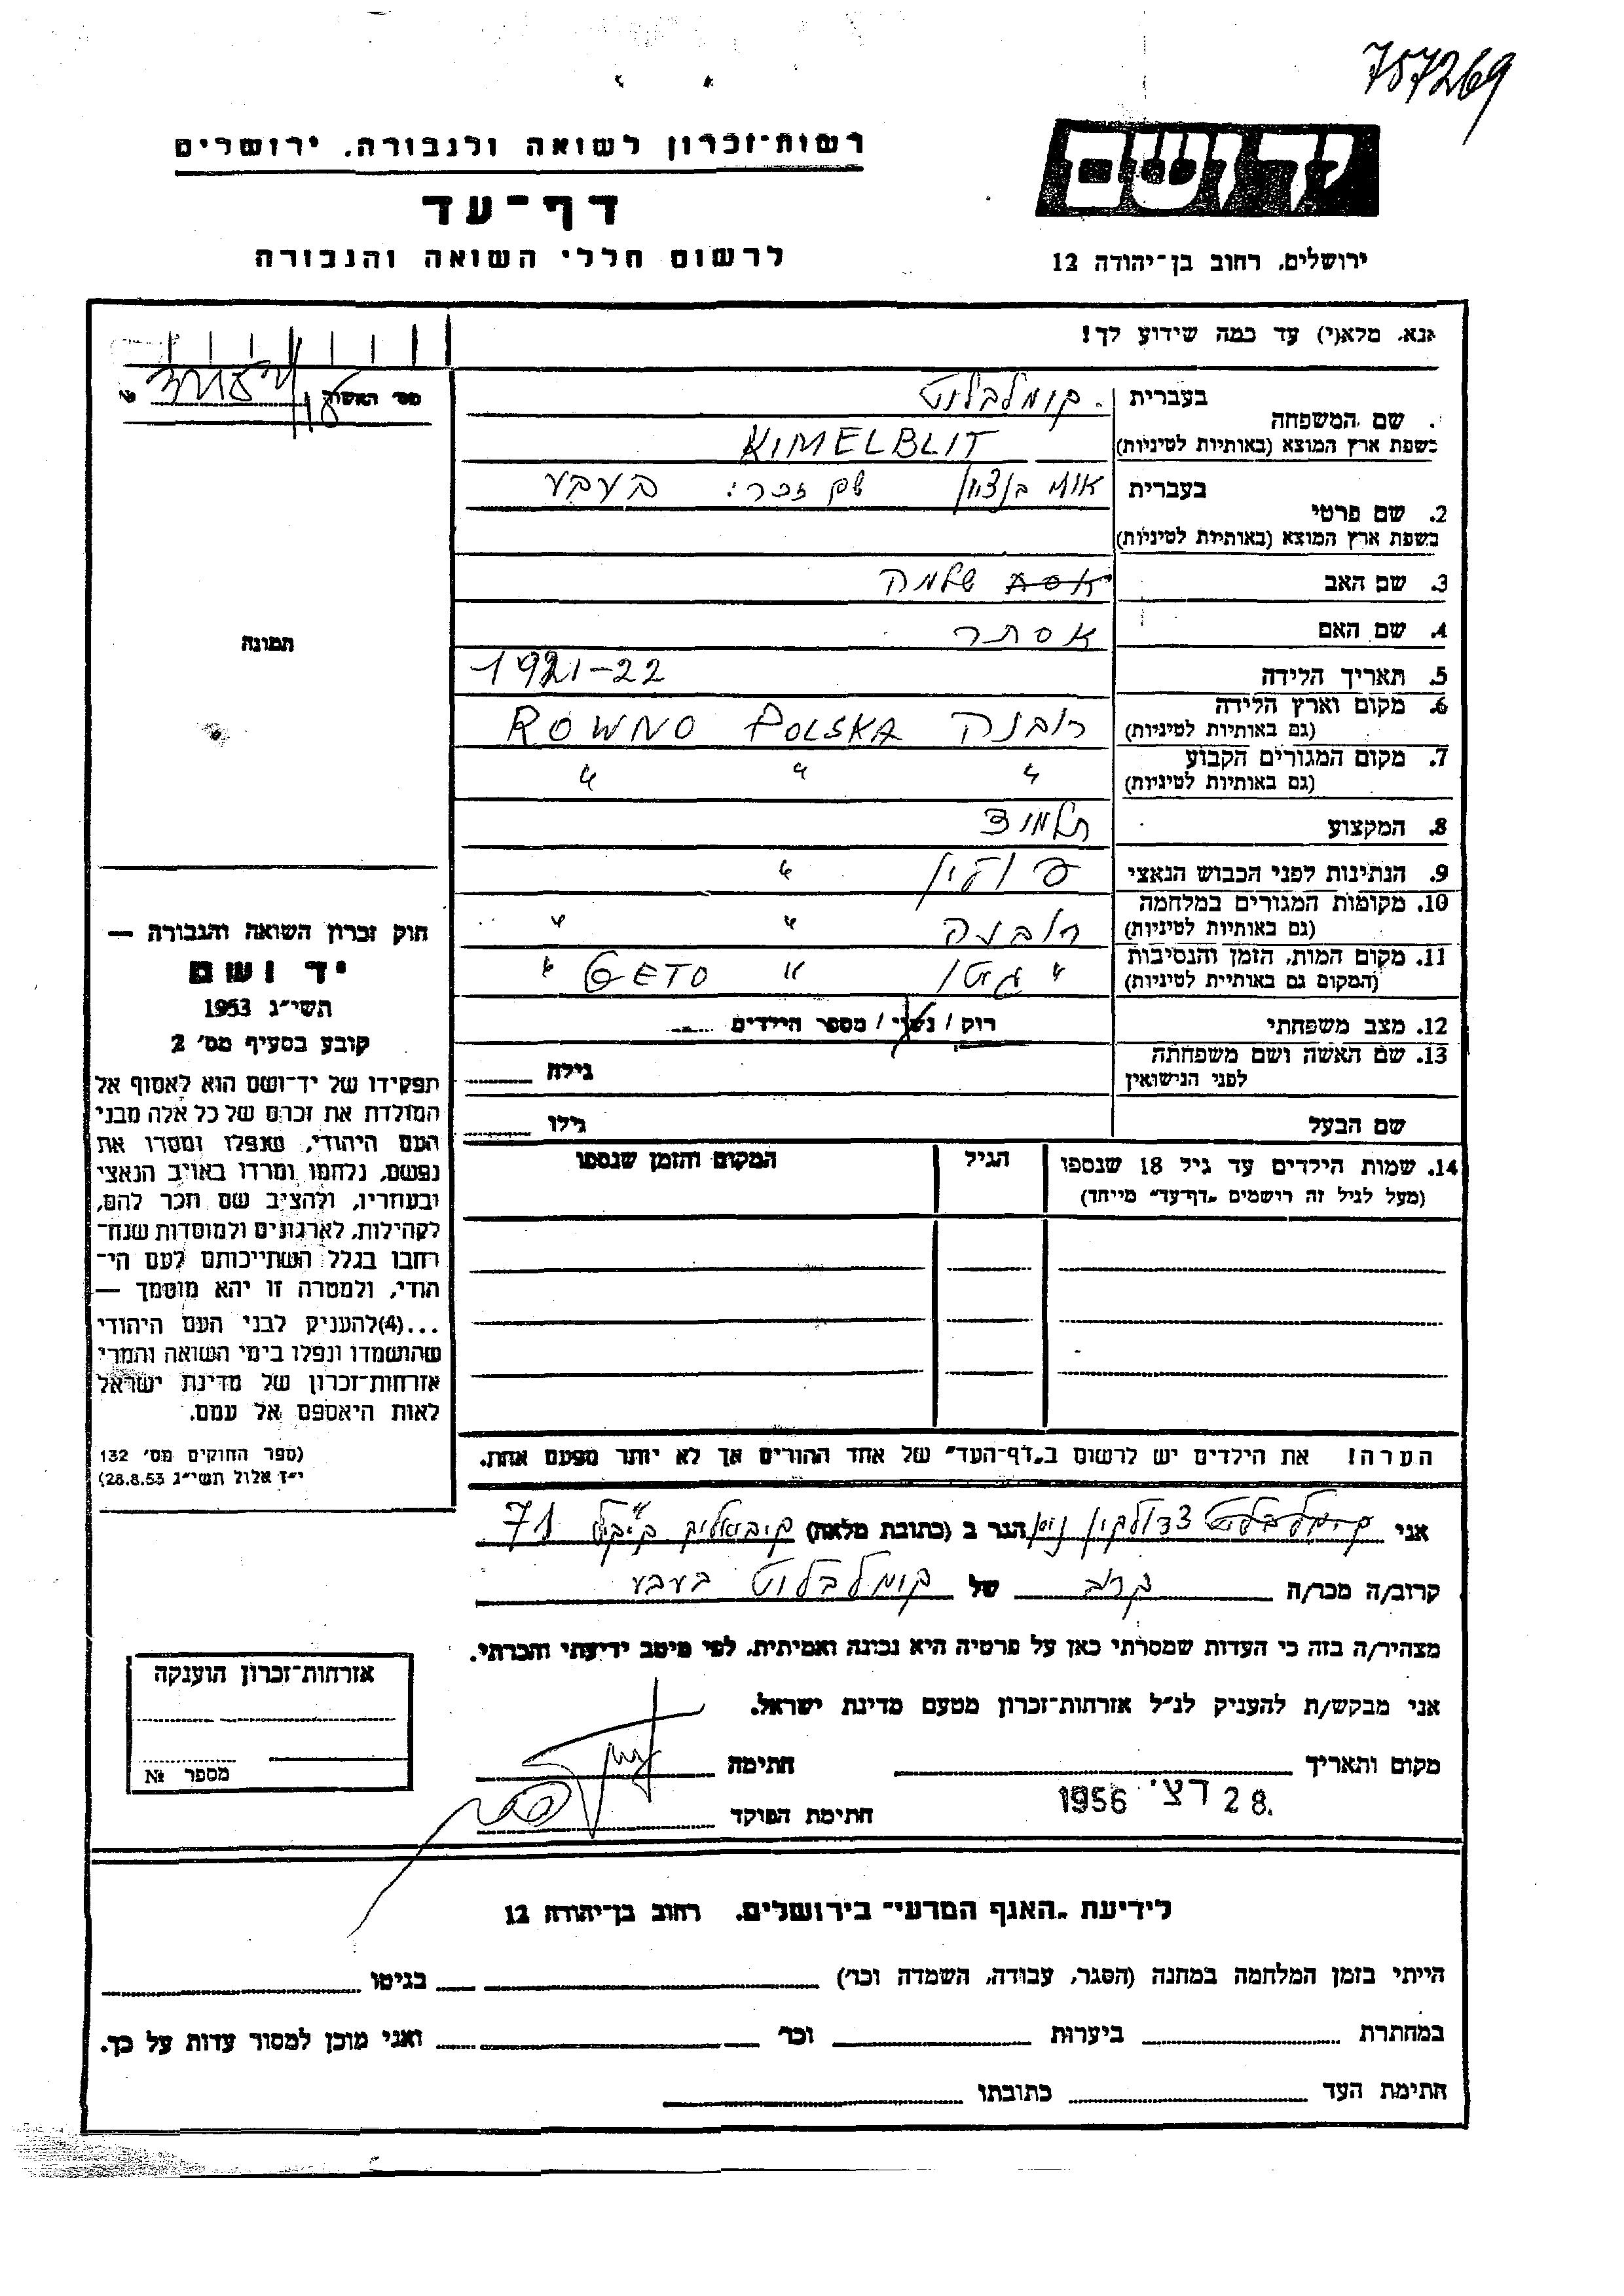 757269
יד ושם
רשות־זכרון לשואה ולגבורה, ירושלים
דף־עד
לרשום חללי השואה והגבורה
ירושלים, רחוב בן־יהודה 12
נא, מלא(י) עד כמה שידוע לך!
מס' האשור №
שם המשפחה
בעברית קומלבלוט
בשפת ארץ המוצא (באותיות לטיניות) KIMELBLIT
2. שם פרטי
בעברית בן ציון שם זכר:
בשפת ארץ המוצא (באותיות לטיניות)
3. שם האב שלמה
4. שם האם אסתר
5. תאריך הלידה 1921-22
6. מקום וארץ הלידה (גם באותיות לטיניות) רובנה POLSKA ROWNO
7. מקום המגורים הקבוע (גם באותיות לטיניות) " " "
8. המקצוע תלמיד
9. הנתינות לפני הכבוש הנאצי פולין "
10. מקומות המגורים במלחמה (גם באותיות לטיניות) רובנה " "
11. מקום המות, הזמן והנסיבות (המקום גם באותיית לטיניות) " גטו " GETO "
12. מצב משפחתי רוק / נשוי / מספר הילדים
13. שם האשה ושם משפחתה לפני הנישואין גילה
שם הבעל גילו
14. שמות הילדים עד גיל 18 שנספו
(מעל לגיל זה רושמים "דף־עד" מייחד)
הגיל
המקום והזמן שנספו
הערה! את הילדים יש לרשום ב"דף־העד" של אחד ההורים אך לא יותר מפעם אחת.
תמונה
חוק זכרון השואה והגבורה —
יד ושם
תשי״ג 1953
קובע בסעיף מס' 2
תפקידו של יד־ושם הוא לאסוף אל
המולדת את זכרם של כל אלה מבני
העם היהודי, שנפלו ומסרו את
נפשם, נלחמו ומרדו באויב הנאצי
ובעוזריו, ולהציב שם וזכר להם,
לקהילות, לארגונים ולמוסדות שנח־
רבו בגלל השתייכותם לעם הי־
הודי, ולמטרה זו יהא מוסמך —
...(4)להעניק לבני העם היהודי
שהושמדו ונפלו בימי השואה והמרי
אזרחות־זכרון של מדינת ישראל
לאות היאספם אל עמם.
(ספר החוקים מס' 132
י״ז אלול תשי״ג 28.8.53)
אני קומלבלוט הגר ב (כתובת מלאה) 71
קרוב/ה מכר/ה קרוב של קומלבלוט
מצהיר/ה בזה כי העדות שמסרתי כאן על פרטיה היא נכונה ואמיתית, לפי מיטב ידיעתי והכרתי.
אני מבקש/ת להעניק לנ״ל אזרחות־זכרון מטעם מדינת ישראל.
מקום ותאריך חתימה
28. דצי 1956
חתימת הפוקד
אזרחות־זכרון הוענקה
מספר №
לידיעת "האגף המדעי" בירושלים, רחוב בן־יהודה 12
הייתי בזמן המלחמה במחנה (הסגר, עבודה, השמדה וכו') בגיטו
במחתרת ביערות וכו' ואני מוכן למסור עדות על כך.
חתימת העד כתובתו